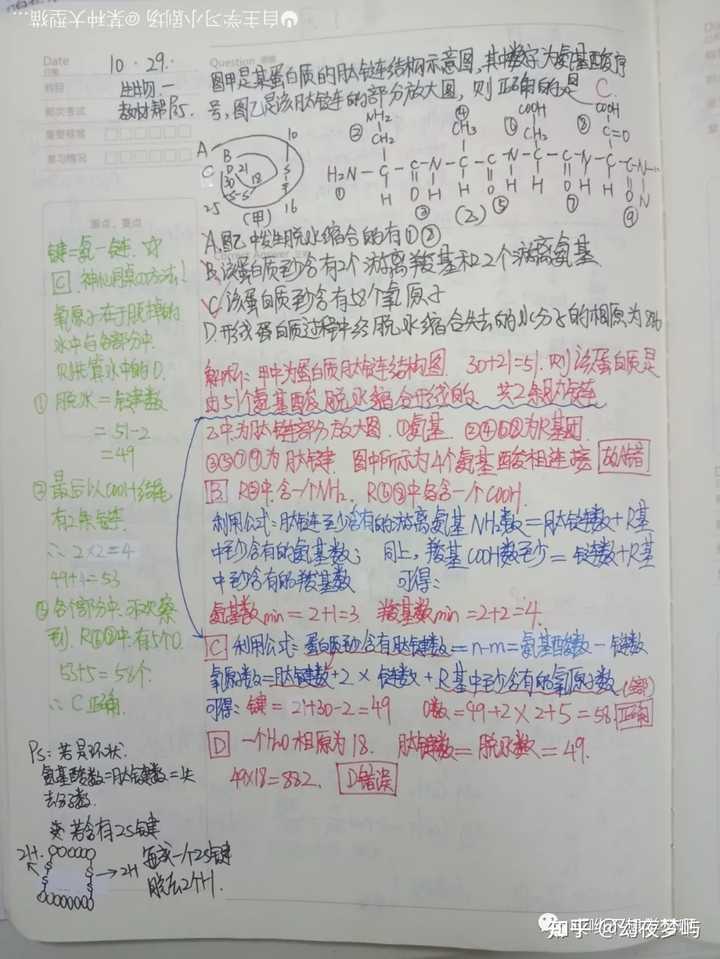 自主学习小剧场@某种大型猫...
Date
日期
Question
10.29.
科目
生物一
教材帮P5.
重要程度
复习情况
图甲是某蛋白质的肽链结构示意图,其中数字为氨基酸序
号,图乙是该肽链的部分放大图,则正确的是 C.
A
B
C D
30 21
18
S-S
10
S
S
25 16
(甲)
② NH₂
CH₂
④ CH₃
⑥ COOH
CH₂
⑧ COOH
C=O
H₂N-C-C-N-C-C-N-C-C-N-C-C-N-
① H O H H O H H O H H O H
③ ⑤ ⑦ ⑨
(乙)
A.图乙中发生脱水缩合的有①②
B.该蛋白质至少含有2个游离羧基和2个游离氨基
C.该蛋白质至少含有58个氧原子
D.形成蛋白质过程中经脱水缩合失去的水分子的相原为
解析:甲中为蛋白质肽链结构图 30+21=51.则该蛋白质是
由51个氨基酸脱水缩合形成的 共2条肽链
乙中为肽链部分放大图.①氨基.②④⑥⑧为R基团.
③⑤⑦⑨为肽键.图中所示为4个氨基酸相连接 故A错
B R②中含一个NH₂. R⑥⑧中各含一个COOH.
利用公式:肽链至少含有的游离氨基NH₂数=肽链数+R基
中至少含有的氨基数; 同上,羧基COOH数至少=链数+R基
中至少含有的羧基数 可得:
氨基数min=2+1=3. 羧基数min=2+2=4.
C 利用公式:蛋白质至少含有肽键数=n-m=氨基酸数-链数
氧原子数=肽键数+2×链数+R基中至少含有的氧原子数
可得:键=21+30-2=49 O数=49+2×2+5=58. 正确
D 一个H₂O相原为18. 肽键数=脱水数=49.
49×18=882. D错误
重点、要点
键=氨-链.☆
C 神仙同桌の方法!
氧原子在于脱掉的
水中与各部分中.
则先算水中的O.
① 脱水=键数
=51-2
=49
② 最后以COOH结尾
有2条链.
∴2×2=4
49+4=53
③ 各个部分中.不难察
到.R⑥⑧中有5个O.
53+5=58个.
∴C正确.
Ps:若是环状.
氨基酸数=肽键数=失
去水分子数.
若含有2S键
2H
S
S
S
S
→2H
每或一个2S键
脱去2个H.
知乎 @幻夜梦屿